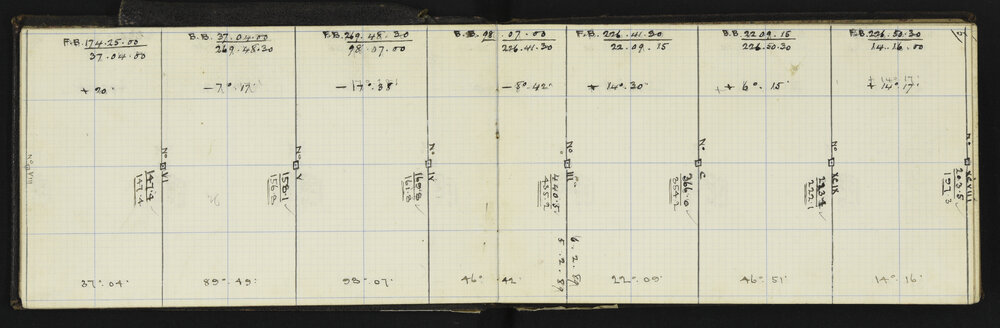 F.B. 174.25.00
37.04.00
B.B. 37.04.00
269.48.30
F.B. 269.48.30
98.07.00
B.B. 98.07.00
226.41.30
F.B. 226.41.30
22.09.15
B.B. 22.09.15
226.50.30
F.B. 226.50.30
14.16.00
+ 20'
- 7°.17'
- 17°.38'
- 5°.42'
+ 14°.30'
+ 6°.15'
+ 14°.17'
No VIII
No VI
147.4
147.4
No V
158.1
156.8
No IV
169.8
161.8
No III
440.5
435.2
No C
366.0
354.2
No XCIX
223.4
222.1
No XCVIII
203.5
197.3
5.2.89
6.2.89
37°.04'
89°.49'
98°.07'
46° 42'
22°.09'
46°.51
14°.16'